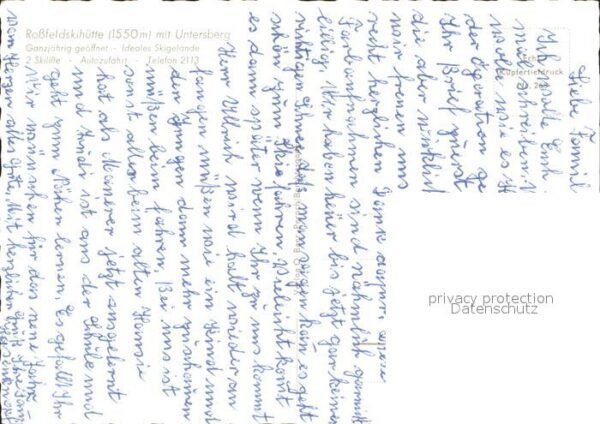 Roßfeldskihütte (1550 m) mit Untersberg
Ganzjährig geöffnet - Ideales Skigelände
2 Skilifte - Autozufahrt - Telefon 2113
Kupfertiefdruck
privacy protection
Datenschutz
Liebe Famil
Ihr wollt Euch
mit schreiben
wolle wie es
der Operation ge
Ihr Brief zuerst
die aber wirklich
wir freuen uns
recht herzlichen Dank
Farbaufnahmen sind nähmlich garnicht
billig. Wir haben hier bis jetzt gar keinen
richtigen Schnee daß man sagen kan es geht
schön zum Skie fahren, vieleicht kommt
es doch später wenn Ihr zu uns kommt
Herr Ullrich wird halt wieder an
fangen müßen wie ein Kind und
den Jungen dann mehr zuschauen
müßen beim fahren. Bei uns ist
sonst alles beim alten Hansi
hat als Maurer jetzt ausgelernt
und Trudi ist aus der Schule und
geht zum Nähen lernen, Es gefällt Ihr
Wir wünschen für das neue Jahr
vom Herzen alles Gute, Mit herzlichen